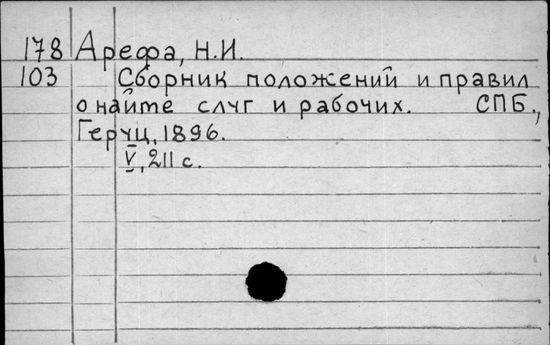 178 Арефа, Н.И.
103 Сборник положений и правил
о найте слуг и рабочих. СПБ.,
Геруц, 1896.
V, 211 с.